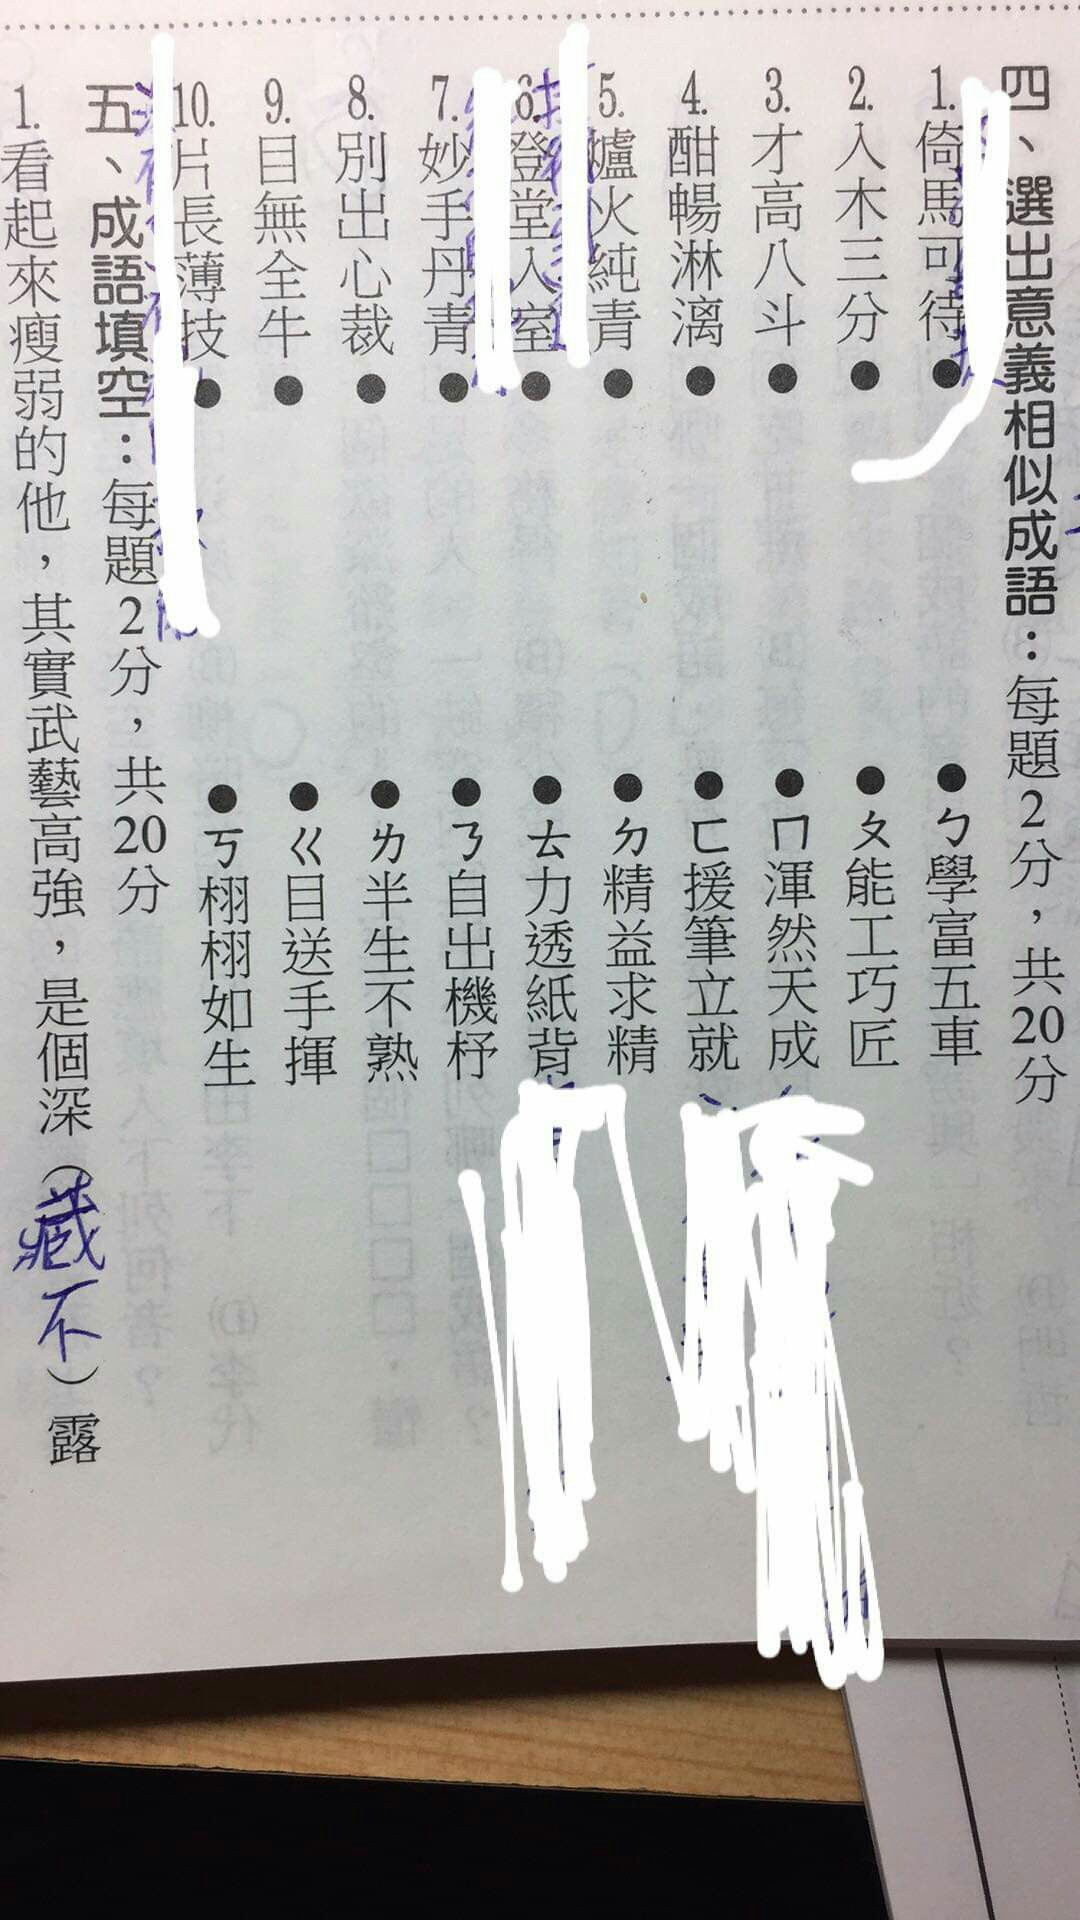 四、選出意義相似成語：每題2分，共20分
1.倚馬可待
2.入木三分
3.才高八斗
4.酣暢淋漓
5.爐火純青
6.登堂入室
7.妙手丹青
8.別出心裁
9.目無全牛
10.片長薄技
ㄅ學富五車
ㄆ能工巧匠
ㄇ渾然天成
ㄈ援筆立就
ㄉ精益求精
ㄊ力透紙背
ㄋ自出機杼
ㄌ半生不熟
ㄍ目送手揮
ㄎ栩栩如生
五、成語填空：每題2分，共20分
1.看起來瘦弱的他，其實武藝高強，是個深（藏不）露